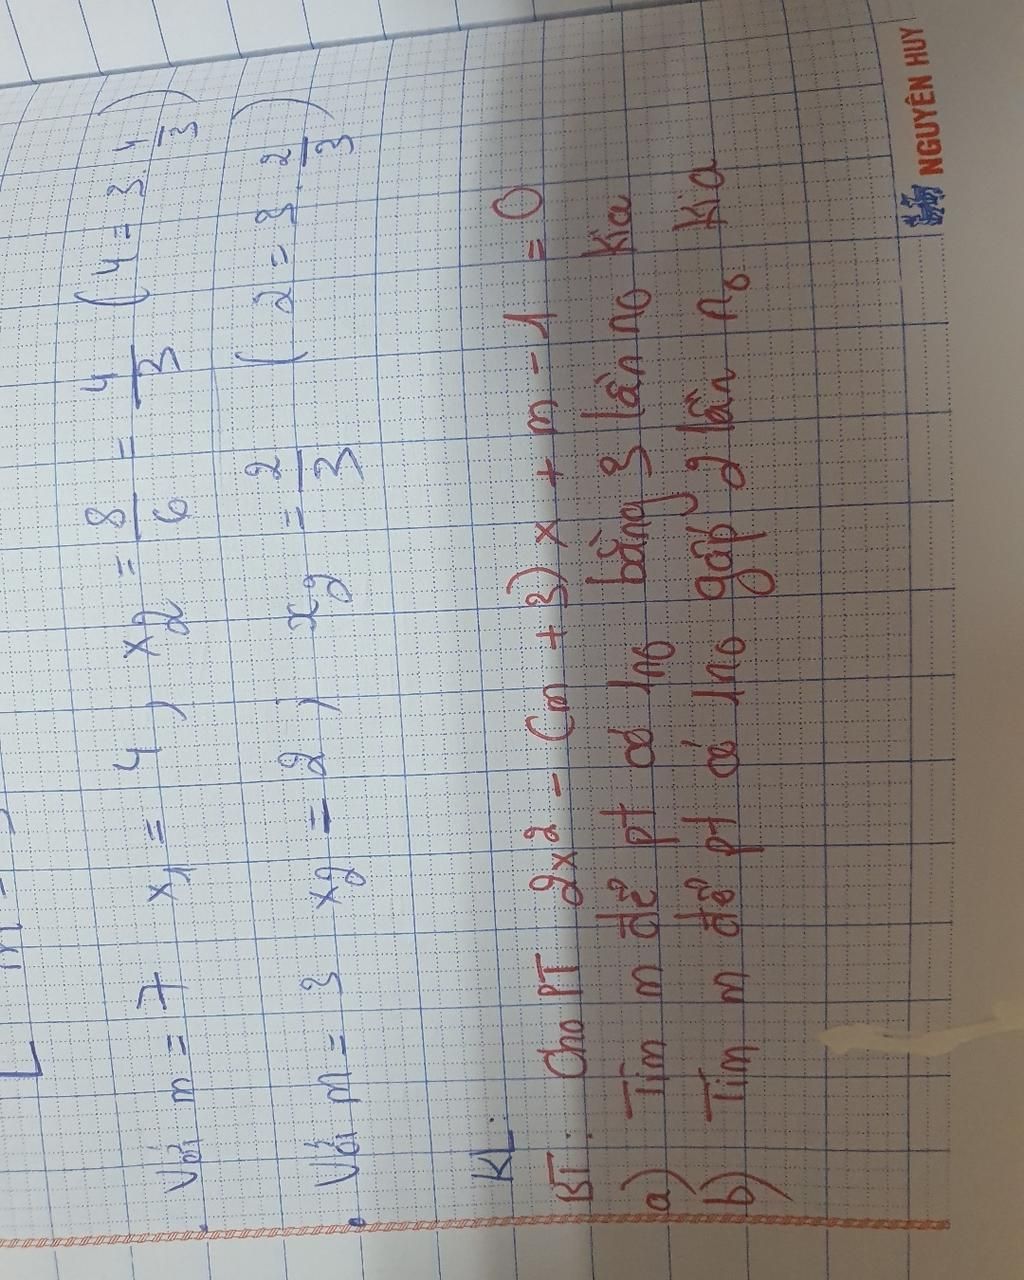 Với m = 7 x1 = 4 , x2 = 8/6 = 4/3 ( 4 = 3. 4/3 )
Với m = 3 x2 = 2 , x2 = 2/3 ( 2 = 3. 2/3 )
KL:
BT: Cho PT 2x² - (m + 3) x + m - 1 = 0
a) Tìm m để pt có 1no bằng 3 lần no kia
b) Tìm m để pt có 1no gấp 2 lần no kia
NGUYÊN HUY